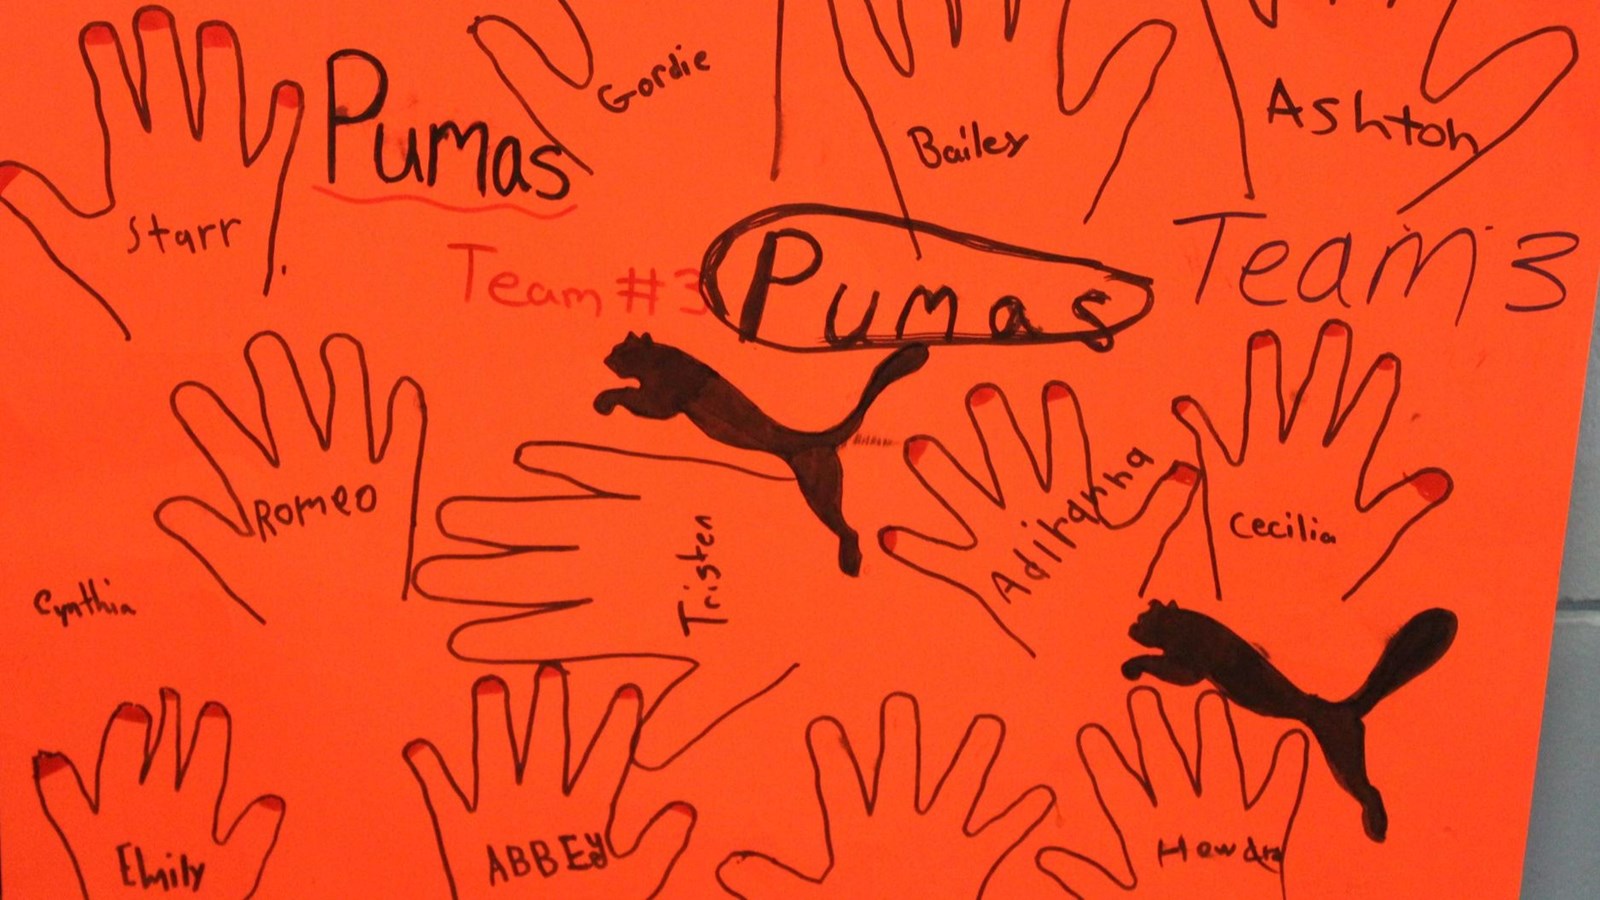 Pumas
Gordie
Bailey
Ashton
Starr
Team #3
Pumas
Team 3
Romeo
Tristen
Cecilia
Cynthia
Emily
ABBEY